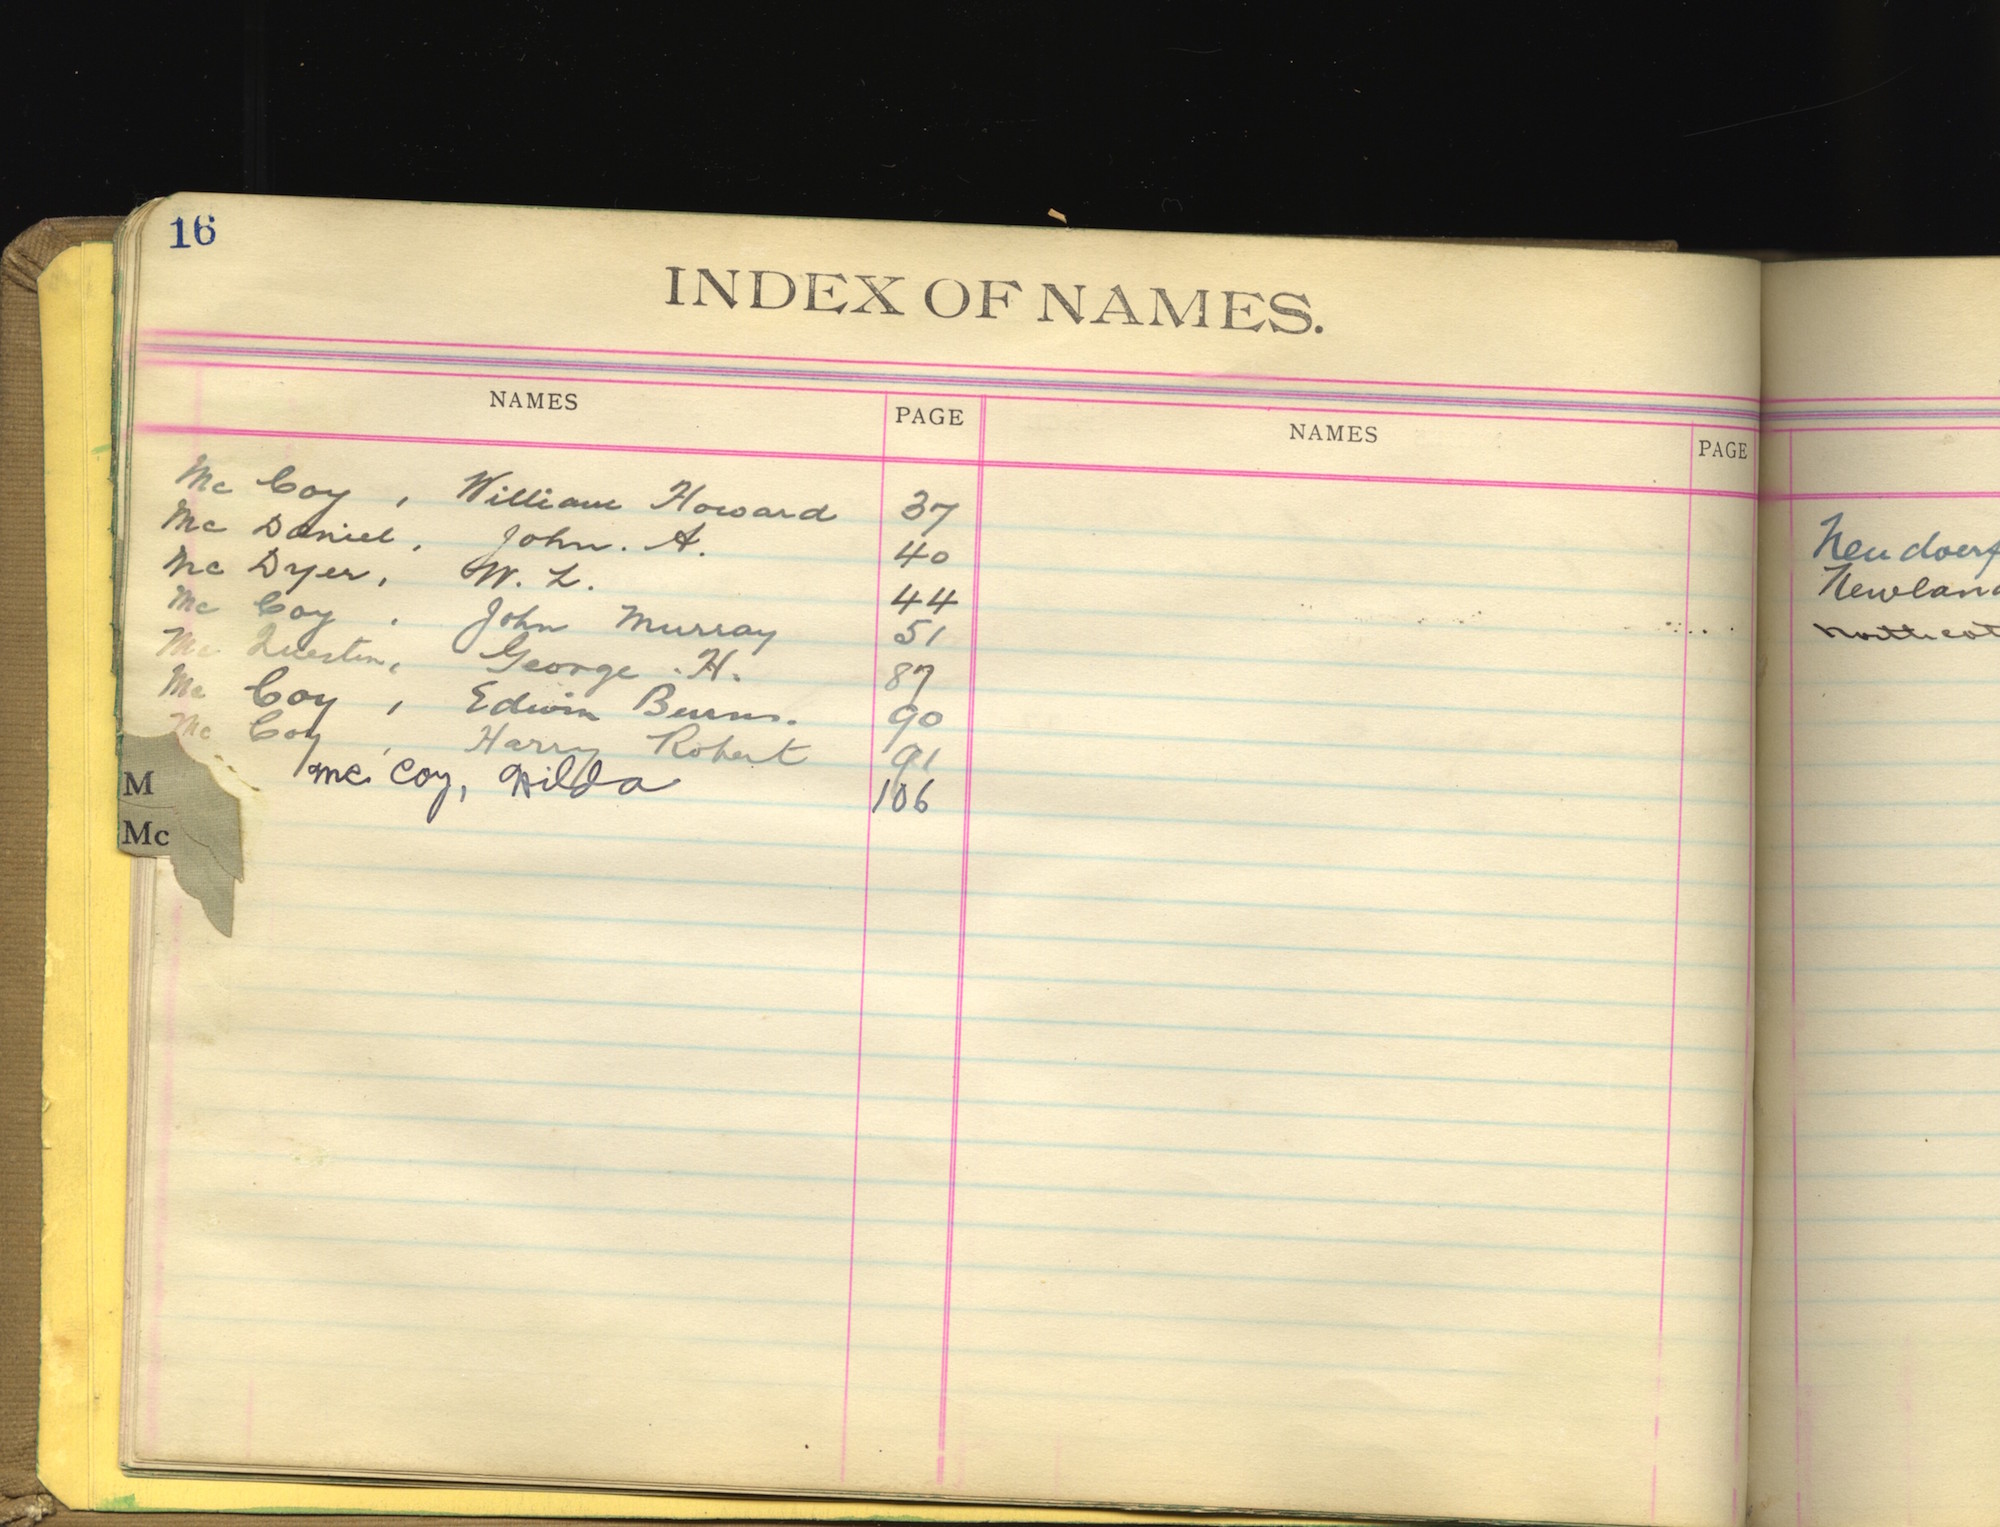 16
INDEX OF NAMES.
NAMES PAGE NAMES PAGE
Mc Coy, William Howard 37
Mc Daniel, John. A. 40
Mc Dyer, W. L. 44
Mc Coy, John Murray 51
Mc Questin, George H. 87
Mc Coy, Edwin Burns. 90
Mc Coy, Harry Robert 91
Mc Coy, Hilda 106
M
Mc
Neudoerf
Newland
Northcot